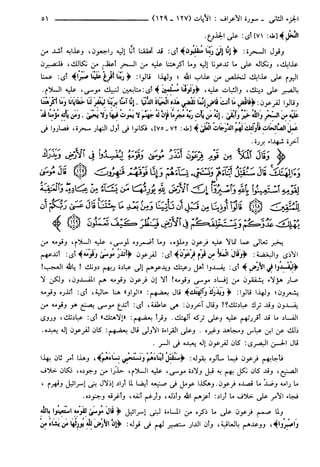 الجزء الثاني - سورة الأعراف : الآيات (١٢٧ - ١٢٩) ٥١
النَّخْلِ﴾ [طه: ٧١] أي: على الجذوع.
وقول السحرة: ﴿إِنَّا إِلَىٰ رَبِّنَا مُنقَلِبُونَ﴾ أي: قد تحققنا أنا إليه راجعون، وعذابه أشد من
عذابك، ونكاله على ما تدعونا إليه وما أكرهتنا عليه من السحر أعظم من نكالك، فلنصبرن
اليوم على عذابك لنخلص من عذاب الله ؛ ولهذا قالوا: ﴿رَبَّنَا أَفْرِغْ عَلَيْنَا صَبْرًا﴾ أي: عمنا
بالصبر على دينك، والثبات عليه، ﴿وَتَوَفَّنَا مُسْلِمِينَ﴾ أي: متابعين لنبيك موسى، عليه السلام.
وقالوا لفرعون: ﴿فَاقْضِ مَا أَنتَ قَاضٍ إِنَّمَا تَقْضِي هَٰذِهِ الْحَيَاةَ الدُّنْيَا. إِنَّا آمَنَّا بِرَبِّنَا لِيَغْفِرَ لَنَا خَطَايَانَا وَمَا أَكْرَهْتَنَا
عَلَيْهِ مِنَ السِّحْرِ وَاللَّهُ خَيْرٌ وَأَبْقَىٰ. إِنَّهُ مَن يَأْتِ رَبَّهُ مُجْرِمًا فَإِنَّ لَهُ جَهَنَّمَ لَا يَمُوتُ فِيهَا وَلَا يَحْيَىٰ. وَمَن يَأْتِهِ مُؤْمِنًا قَدْ
عَمِلَ الصَّالِحَاتِ فَأُولَٰئِكَ لَهُمُ الدَّرَجَاتُ الْعُلَىٰ﴾ [طه: ٧٢ ـ ٧٥]، فكانوا في أول النهار سحرة، فصاروا في
آخره شهداء بررة.
﴿وَقَالَ الْمَلَأُ مِن قَوْمِ فِرْعَوْنَ أَتَذَرُ مُوسَىٰ وَقَوْمَهُ لِيُفْسِدُوا فِي الْأَرْضِ
وَيَذَرَكَ وَآلِهَتَكَ قَالَ سَنُقَتِّلُ أَبْنَاءَهُمْ وَنَسْتَحْيِي نِسَاءَهُمْ وَإِنَّا فَوْقَهُمْ
قَاهِرُونَ قَالَ مُوسَىٰ لِقَوْمِهِ اسْتَعِينُوا بِاللَّهِ وَاصْبِرُوا إِنَّ الْأَرْضَ لِلَّهِ يُورِثُهَا مَن يَشَاءُ مِنْ عِبَادِهِ وَالْعَاقِبَةُ
لِلْمُتَّقِينَ قَالُوا أُوذِينَا مِن قَبْلِ أَن تَأْتِيَنَا وَمِن بَعْدِ مَا جِئْتَنَا قَالَ عَسَىٰ رَبُّكُمْ أَن
يُهْلِكَ عَدُوَّكُمْ وَيَسْتَخْلِفَكُمْ فِي الْأَرْضِ فَيَنظُرَ كَيْفَ تَعْمَلُونَ﴾
يخبر تعالى عما تمالأ عليه فرعون وملؤه، وما أضمروه لموسى، عليه السلام، وقومه من
الأذى والبغضة: ﴿وَقَالَ الْمَلَأُ مِن قَوْمِ فِرْعَوْنَ﴾ أي: لفرعون ﴿أَتَذَرُ مُوسَىٰ وَقَوْمَهُ﴾ أي: أتدعهم
﴿لِيُفْسِدُوا فِي الْأَرْضِ﴾ أي: يفسدوا أهل رعيتك ويدعوهم إلى عبادة ربهم دونك ! يالله العجب!
صار هؤلاء يشفقون من إفساد موسى وقومه! ألا إن فرعون وقومه هم المفسدون، ولكن لا
يشعرون؛ ولهذا قالوا: ﴿وَيَذَرَكَ وَآلِهَتَكَ﴾ قال بعضهم: «الواو» هنا حالية، أي: أتذره وقومه
يفسدون وقد ترك عبادتك؟! وقال آخرون: هي عاطفة، أي: أتدع موسى يصنع هو وقومه من
الفساد ما قد أقررتهم عليه وعلى تركه آلهتك. وقرأ بعضهم: «إلاهتك» أي: عبادتك، وروى
ذلك عن ابن عباس ومجاهد وغيره . وعلى القراءة الأولى قال بعضهم: كان لفرعون إله يعبده.
قال الحسن البصري: كان لفرعون إله يعبده في السر .
فأجابهم فرعون فيما سألوه بقوله: ﴿سَنُقَتِّلُ أَبْنَاءَهُمْ وَنَسْتَحْيِي نِسَاءَهُمْ﴾، وهذا أمر ثان بهذا
الصنيع، وقد كان نكل بهم به قبل ولادة موسى، عليه السلام، حذرا من وجوده، فكان خلاف
ما رامه وضد ما قصده فرعون. وهكذا عومل في صنيعه أيضا لما أراد إذلال بني إسرائيل وقهرهم ،
فجاء الأمر على خلاف ما أراد: أعزهم الله وأذله، وأرغم أنفه، وأغرقه وجنوده.
ولما صمم فرعون على ما ذكره من المساءة لبني إسرائيل ﴿قَالَ مُوسَىٰ لِقَوْمِهِ اسْتَعِينُوا بِاللَّهِ
وَاصْبِرُوا﴾، ووعدهم بالعاقبة، وأن الدار ستصير لهم في قوله: ﴿إِنَّ الْأَرْضَ لِلَّهِ يُورِثُهَا مَن يَشَاءُ مِنْ